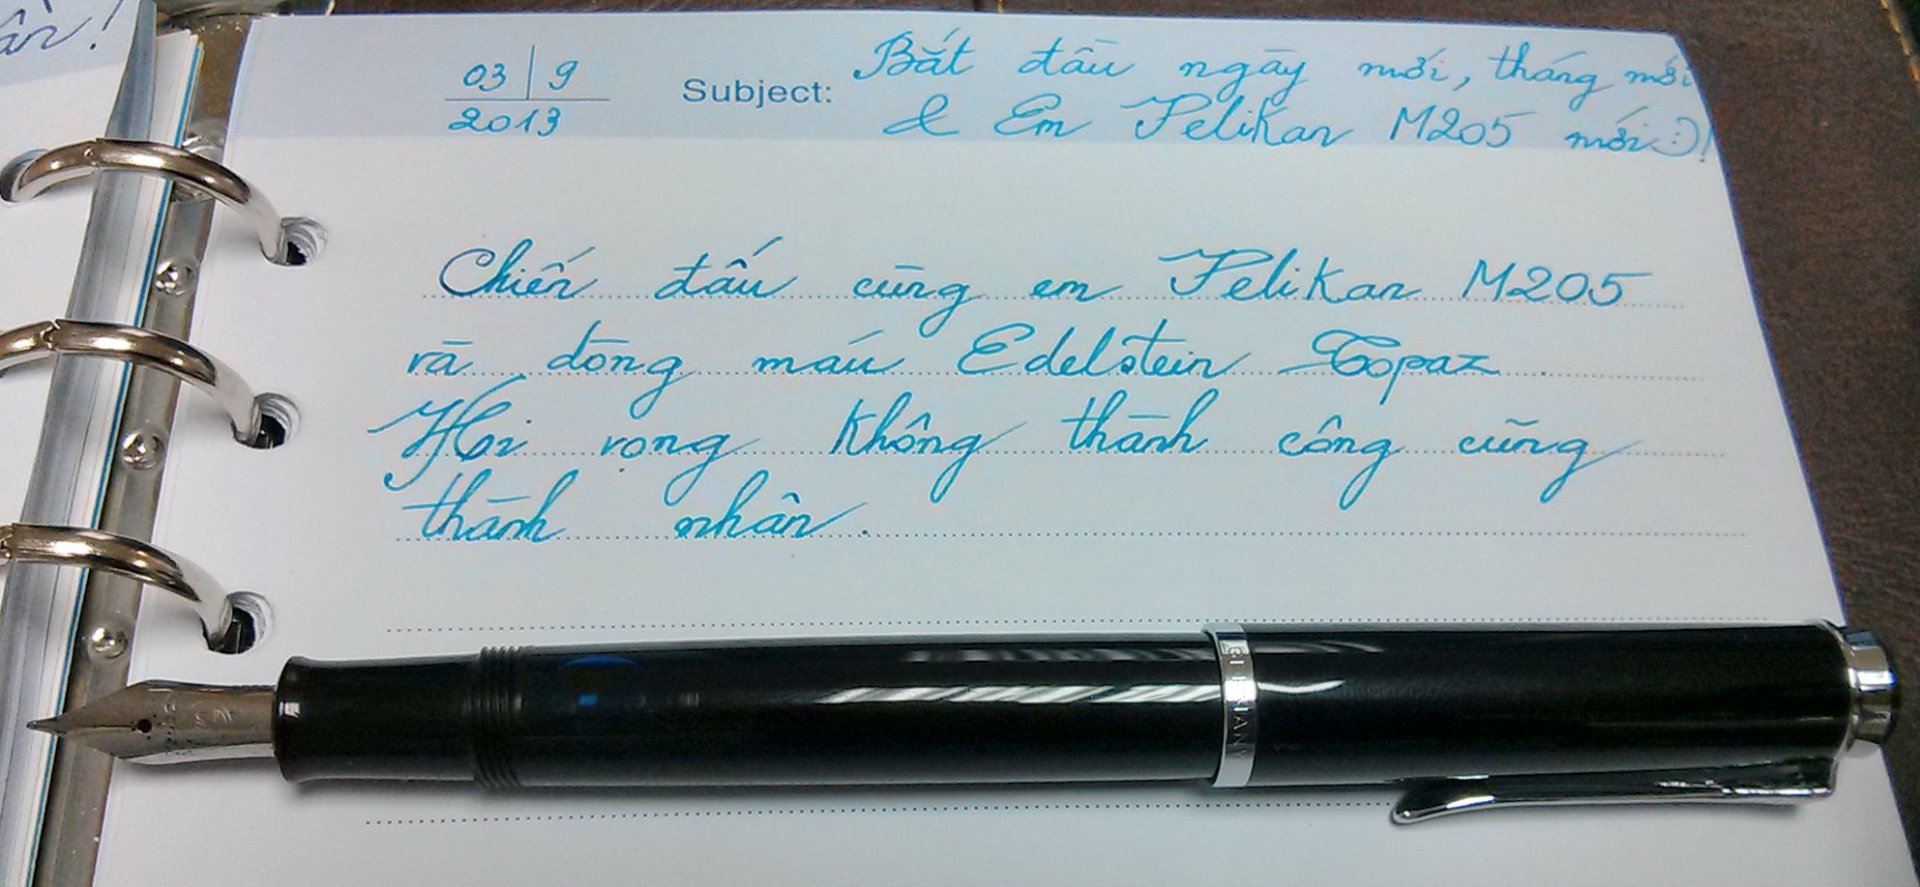 ần!
03 | 9
2013
Subject: Bắt đầu ngày mới, tháng mới
& Em Pelikan M205 mới :)!
Chiến đấu cùng em Pelikan M205
và dòng máu Edelstein Topaz
Hi vọng không thành công cũng
thành nhân.
GERMANY